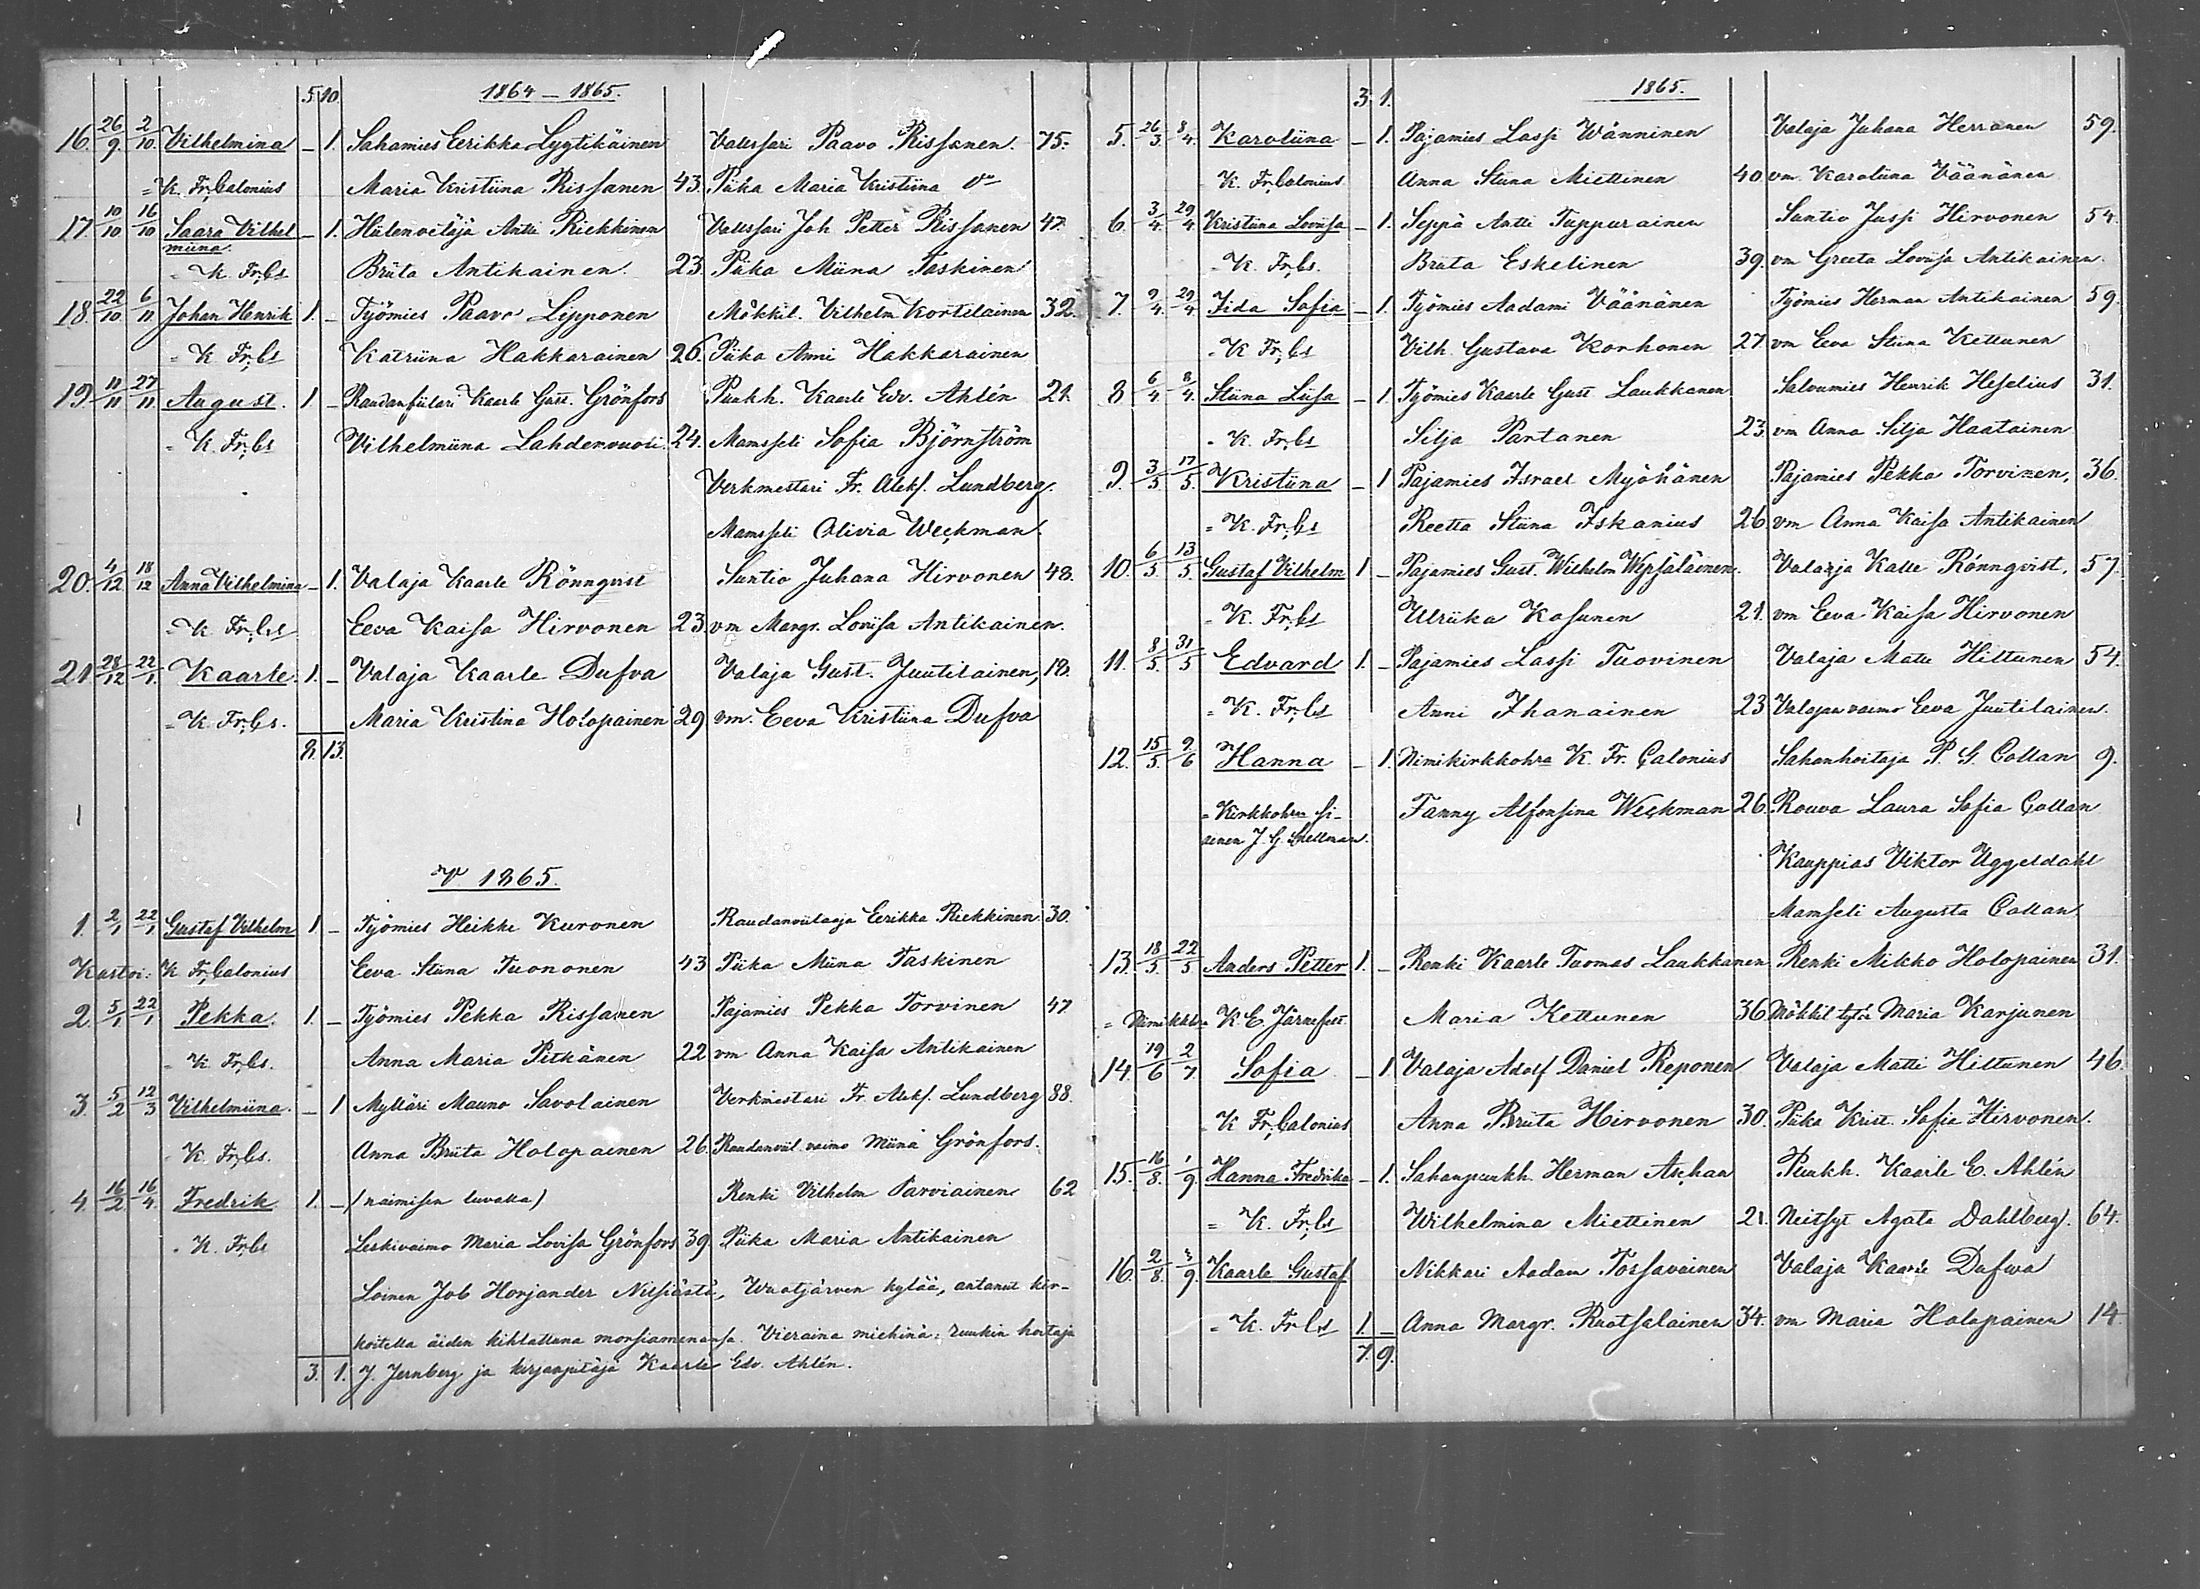 1864 – 1865.
5. 10.
16. 26/9. 2/10. Vilhelmina – 1. Sahamies Eerikka Lyytikäinen Valessari Paavo Rissanen. 75.
= K. Fr. Calonius Maria Kristiina Rissanen 43. Piika Maria Kristiina
17. 10/10 16/10 Saara Vilhel – 1. Hiilenvetäjä Antti Riekkinen Valessari Joh Petter Rissanen 47.
miina.
= K. Fr. Cs Briita Antikainen. 23. Piika Miina Taskinen
18. 22/10. 6/11 Johan Henrik 1. – Työmies Paavo Lipponen Mökkil. Vilhelm Kortelainen 32.
= K Fr. Cs Katriina Hakkarainen 26. Piika Anni Hakkarainen
19. 11/11 27/11 August. 1. – Kaarle Gust. Grönfors Puukh. Kaarle Edv. Ahlén 21.
= K. Fr. Cs Vilhelmiina Lahdenvuoti. 24. Mamsseli Sofia Björnström
Verkmestari Fr. Aleks. Lundberg.
Mamsseli Olivia Weckman.
20. 4/12 18/12 Anna Vilhelmina – 1. Valaja Kaarle Rönnqvist Suntio Juhana Hirvonen 48.
= K Fr. Cs Eeva Kaisa Hirvonen 23. vm Margr. Loviisa Antikainen.
21. 28/12 22/1. Kaarle. 1. – Valaja Kaarle Dufva Valaja Gust. Juutilainen, 18.
= K. Fr. Cs. Maria Kristina Holopainen 29 vm. Eeva Kristiina Dufva
8. 13.
V 1865.
1. 2/1 22/1 Gustaf Vilhelm 1 – Työmies Heikki Kuronen Raudanviilaaja Eerikka Riekkinen 30.
Kastoi: K Fr. Calonius Eeva Stiina Tuononen 43 Piika Miina Taskinen
2. 5/1 22/1 Pekka. 1. – Työmies Pekka Rissanen Pajamies Pekka Torvinen 47
= K Fr. Cs. Anna Maria Pitkänen 22 vm Anna Kaisa Antikainen
3. 5/2 12/3 Vilhelmiina. – 1 Mylläri Mauno Savolainen Verkmestari Fr. Aleks. Lundberg 88.
= K. Fr. Cs. Anna Briita Holopainen 26. Raudanviil. vaimo Miina Grönfors.
4. 16/2 16/4. Fredrik 1. – (naimisen luvalla) Renki Vilhelm Parviainen 62
= K. Fr. Cs Leskivaimo Maria Loviisa Grönfors 39. Piika Maria Antikainen
Loinen Job Horjander Nilsiästä, Wuotjärven kylää, antanut kir-
koitella äiden kihlattuna morsiamenansa. Vieraina miehinä: ruukin hoitaja
3. 1. J. Jernberg ja kirjanpitäjä Kaarle Edv. Ahlén.
1865.
3. 1.
5. 26/3. 8/4. Karoliina – 1. Pajamies Lassi Wänninen Valaja Juhana Herranen 59.
= K. Fr. Calonius Anna Stiina Miettinen 40. vm Karoliina Väänänen
6. 3/4. 29/4 Kristiina Loviisa – 1. Seppä Antti Tuppurainen Suntio Jussi Hirvonen 54.
= K. Fr. Cs. Briita Eskelinen 39. vm Greeta Loviisa Antikainen.
7. 9/4. 29/4 Iida Sofia – 1. Työmies Aadami Väänänen Työmies Herman Antikainen 59.
= K Fr. Cs Vilh. Gustava Korhonen 27. vm Eeva Stiina Kettunen
8 6/4. 8/4. Stiina Liisa – 1. Työmies Kaarle Gust Laukkanen Salvumies Henrik Heselius 31.
= K. Fr. Cs Silja Partanen 23. vm Anna Silja Haatainen
9. 3/5 17/5. Kristiina – 1 Pajamies Israel Myöhänen Pajamies Pekka Torvinen, 36.
= K. Fr. Cs Reetta Stiina Iskanius 26. vm Anna Kaisa Antikainen
10. 6/5 13/5. Gustaf Vilhelm 1 – Pajamies Gust. Wilhelm Wepsäläinen. Valaja Kalle Rönnqvist. 57.
= K. Fr. Cs Ulriika Kosunen 21. vm Eeva Kaisa Hirvonen
11. 8/5. 31/5 Edvard 1. – Pajamies Lassi Tuovinen Valaja Matti Hiltunen 54.
= K. Fr. Cs Anni Ihanainen 23 Valajan vaimo Eeva Juutilainen.
12. 15/5. 9/6 Hanna – 1. Nimikirkkohra K. Fr. Calonius Sahanhoitaja P. G. Collan 9.
= Kirkkohra Ii- Fanny Alfonsina Weckman 26. Rouva Laura Sofia Collan
J. G. Snellman. Kauppias Viktor Uggeldahl
Mamseli Augusta Collan
13. 18/5. 22/5 Anders Petter 1. – Renki Kaarle Tuomas Laukkanen Renki Mikko Holopainen 31.
= Nimikkhra K. E. Järnefelt Maria Kettunen 36 Mökkil tytär Maria Karjunen
14. 19/6 2/7. Sofia – 1. Valaja Adolf Daniel Reponen Valaja Matti Hiltunen 46
= K Fr. Calonius Anna Briita Hirvonen 30. Piika Krist. Sofia Hirvonen.
15. 16/8. 1/9 Hanna Fredrika – 1. Sahanpuukh. Herman Aschan Puukh. Kaarle E. Ahlén
= K. Fr. Cs Wilhelmina Miettinen 21. Neitsyt Agata Dahlberg. 64.
16. 2/8. 3/9. Kaarle Gustaf Nikkari Aadam Torsavainen Valaja Kaarle Dufwa
= K. Fr. Cs 1. – Anna Margr. Ruotsalainen 34. vm Maria Holopainen 14
7. 9.